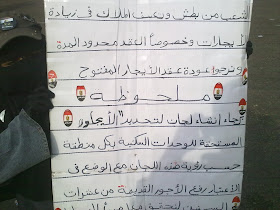 الشعب من بطش وعنف الملاك فى زيادة
الإيجارات وخصوصاً العقد محدود المدة
ونرجوا عودة عقد الأيجار المفتوح
ملحوظة
رجاء انشاء لجان لتحديد الأيجار
المستحقة للوحدات السكنية بكل منطقة
حسب رؤية هذه اللجان مع الوضع فى
الأعتبار رفع الأجور القديمة من عشرات